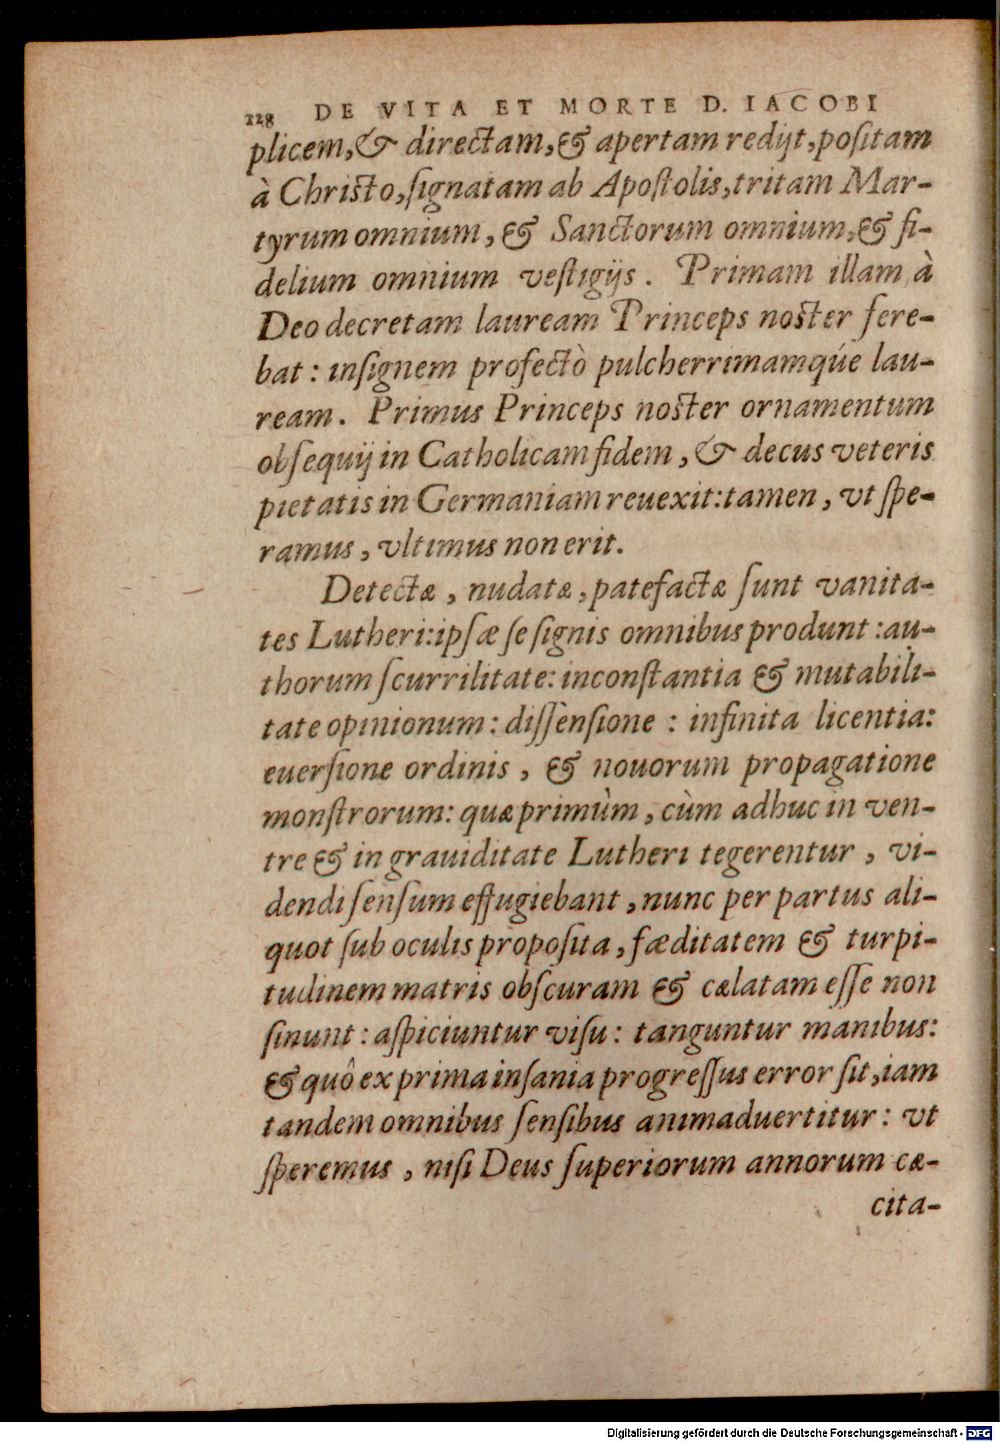 128 DE VITA ET MORTE D. IACOBI
plicem, & directam, & apertam redijt, positam
à Christo, signatam ab Apostolis, tritam Mar-
tyrum omnium, & Sanctorum omnium, & fi-
delium omnium vestigijs. Primam illam à
Deo decretam lauream Princeps noster fere-
bat: insignem profectò pulcherrimamqúe lau-
ream. Primus Princeps noster ornamentum
obsequij in Catholicam fidem, & decus veteris
pietatis in Germaniam reuexit: tamen, vt spe-
ramus, vltimus non erit.
Detectæ, nudatæ, patefactæ sunt vanita-
tes Lutheri: ipsæ se signis omnibus produnt: au-
thorum scurrilitate: inconstantia & mutabili-
tate opinionum: dissensione: infinita licentia:
euersione ordinis, & nouorum propagatione
monstrorum: quæ primùm, cùm adhuc in ven-
tre & in grauiditate Lutheri tegerentur, vi-
dendi sensum effugiebant, nunc per partus ali-
quot sub oculis proposita, fæditatem & turpi-
tudinem matris obscuram & cælatam esse non
sinunt: aspiciuntur visu: tanguntur manibus:
& quô ex prima insania progressus error sit, iam
tandem omnibus sensibus animaduertitur: vt
speremus, nisi Deus superiorum annorum cæ-
cita-
Digitalisierung gefördert durch die Deutsche Forschungsgemeinschaft - DFG